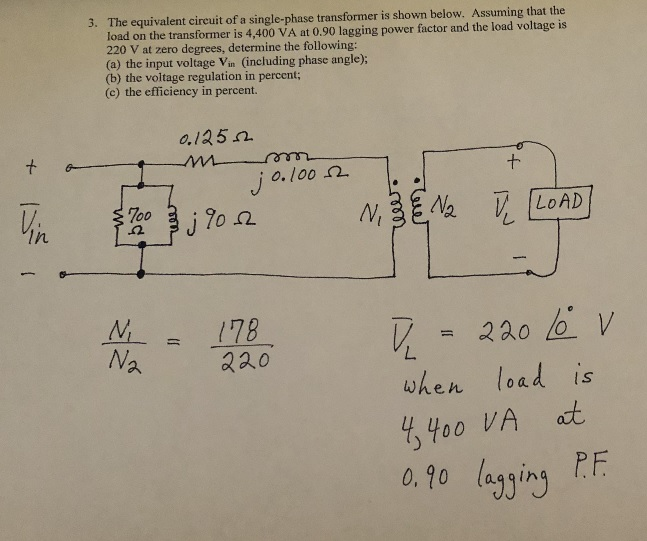 3. The equivalent circuit of a single-phase transformer is shown below. Assuming that the
load on the transformer is 4,400 VA at 0.90 lagging power factor and the load voltage is
220 V at zero degrees, determine the following:
(a) the input voltage Vin (including phase angle);
(b) the voltage regulation in percent;
(c) the efficiency in percent.
0.125 Ω
j 0.100 Ω
+
+
Vin
700 Ω
j 90 Ω
N1
N2
VL
LOAD
−
−
N1/N2 = 178/220
VL = 220 ∠0° V
when load is
4,400 VA at
0.90 lagging P.F.